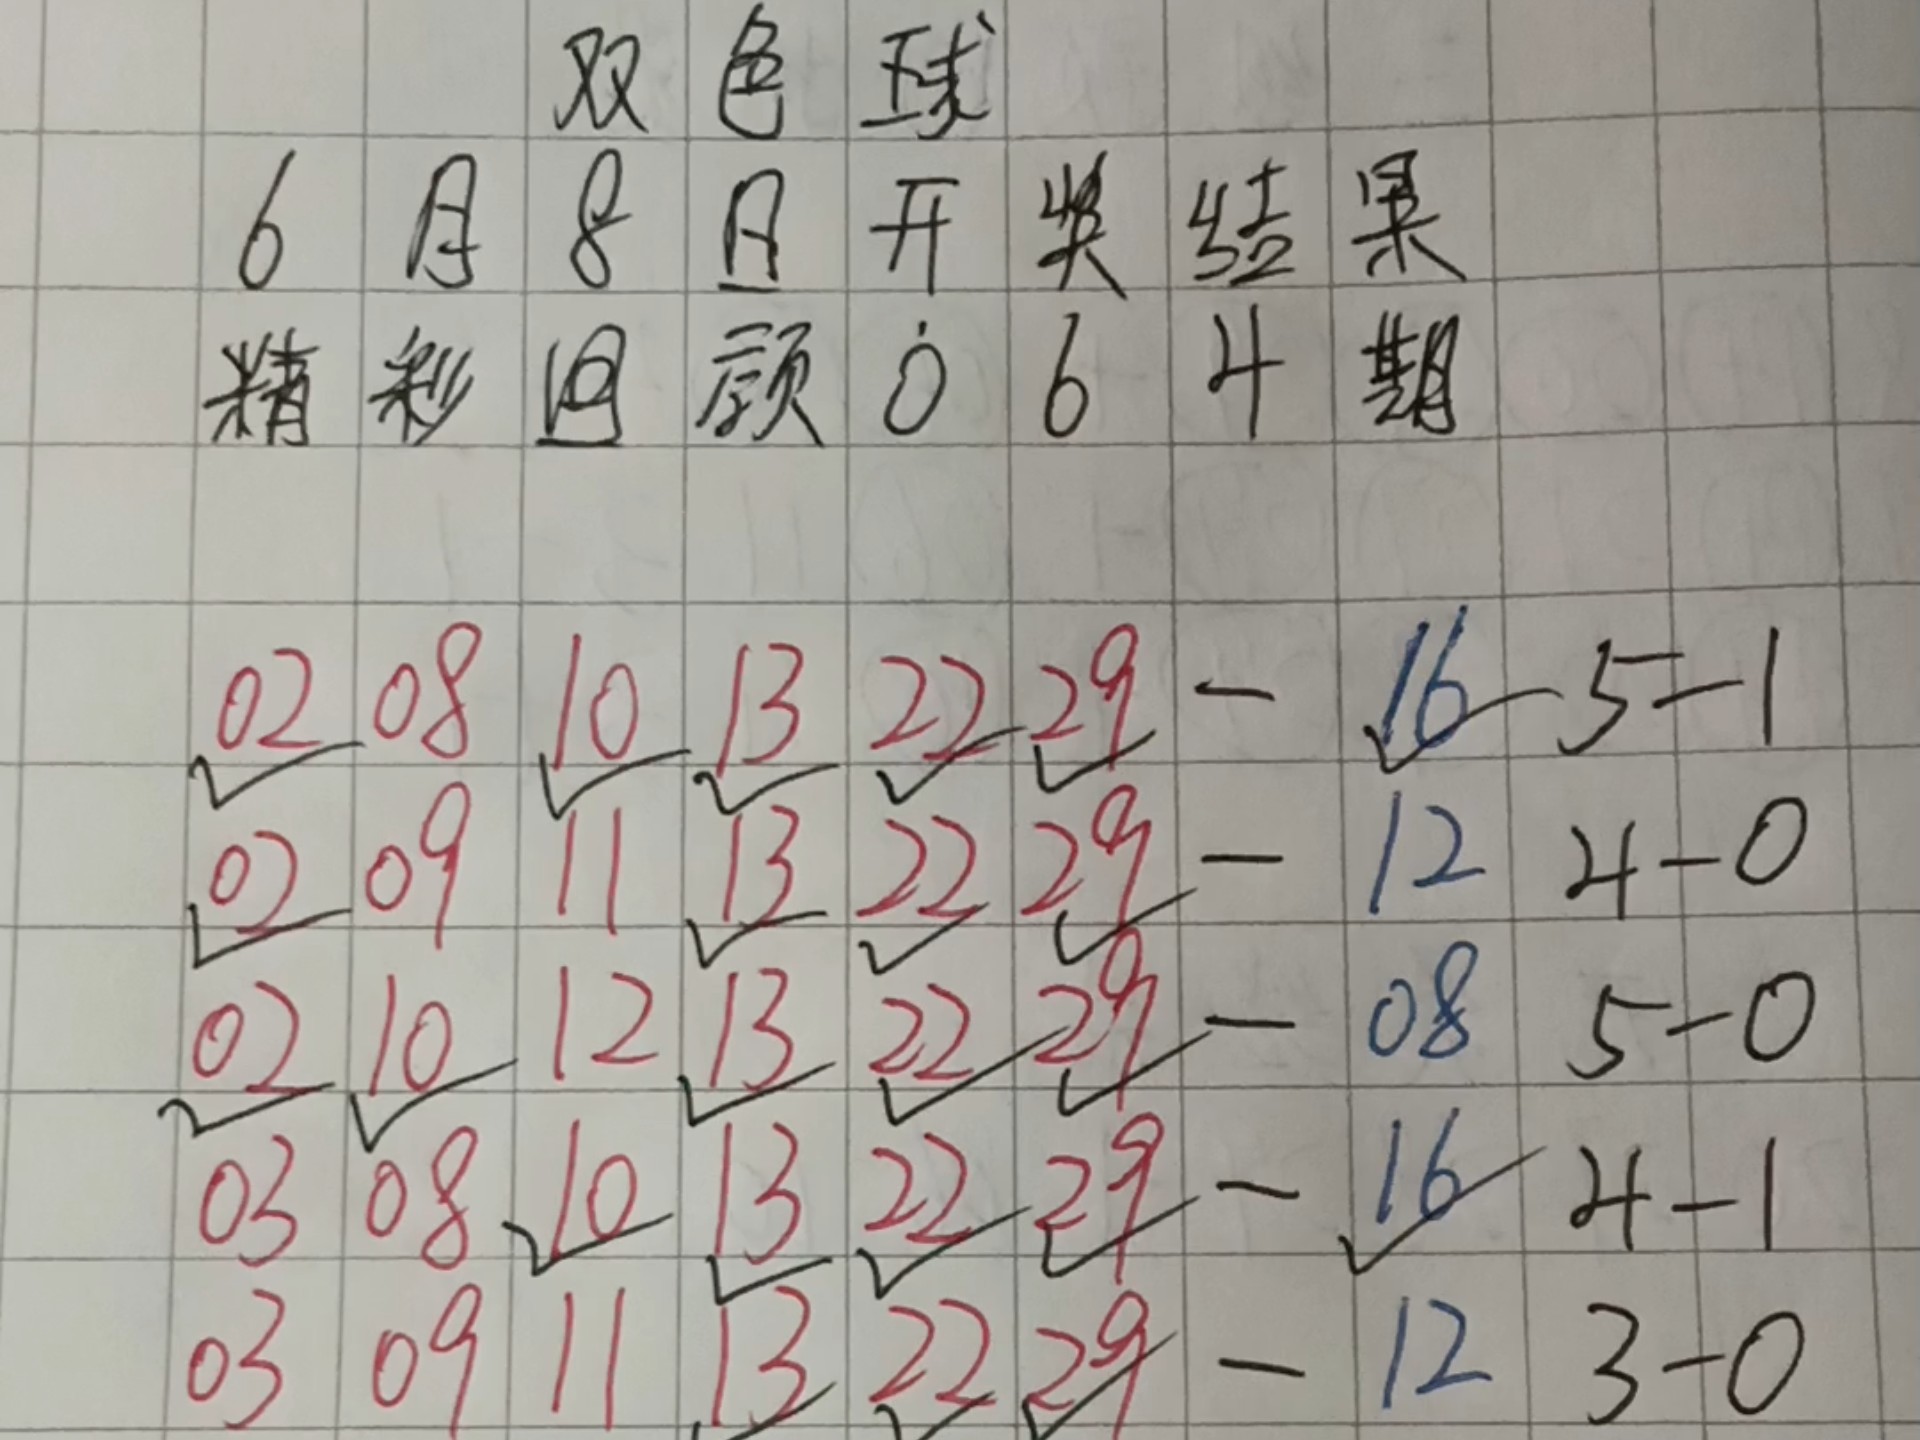 双色球
6月8日开奖结果
精彩回顾064期
02 08 10 13 22 29 - 16 5-1
02 09 11 13 22 29 - 12 4-0
02 10 12 13 22 29 - 08 5-0
03 08 10 13 22 29 - 16 4-1
03 09 11 13 22 29 - 12 3-0